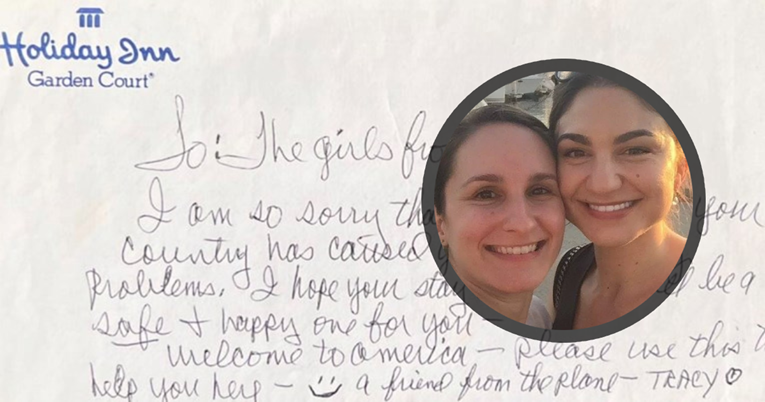 Holiday Inn
Garden Court®
To: The girls
I am so sorry your
country has caused
problems. I hope your stay be a
safe + happy one for you –
welcome to america – please use this
help you here – a friend from the plane – TRACY